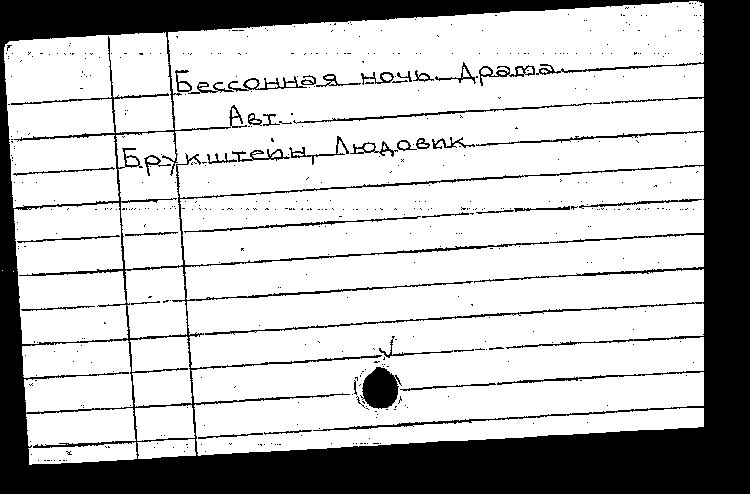 Бессонная ночь. Драма.
Авт.:
Брукштейн, Людовик